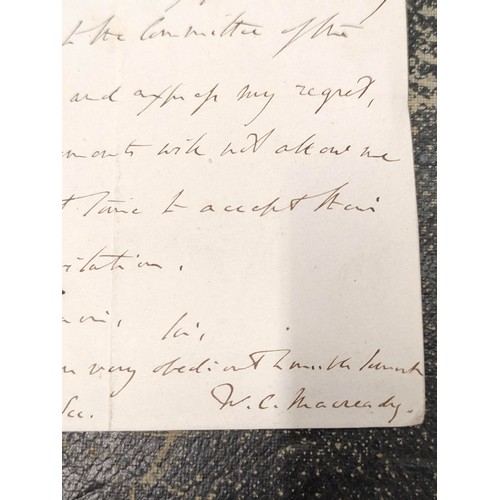 t the Committee of the
and express my regret,
ments will not allow me
t time to accept their
itation.
Sir,
very obedient humble servant
W. C. Macready.